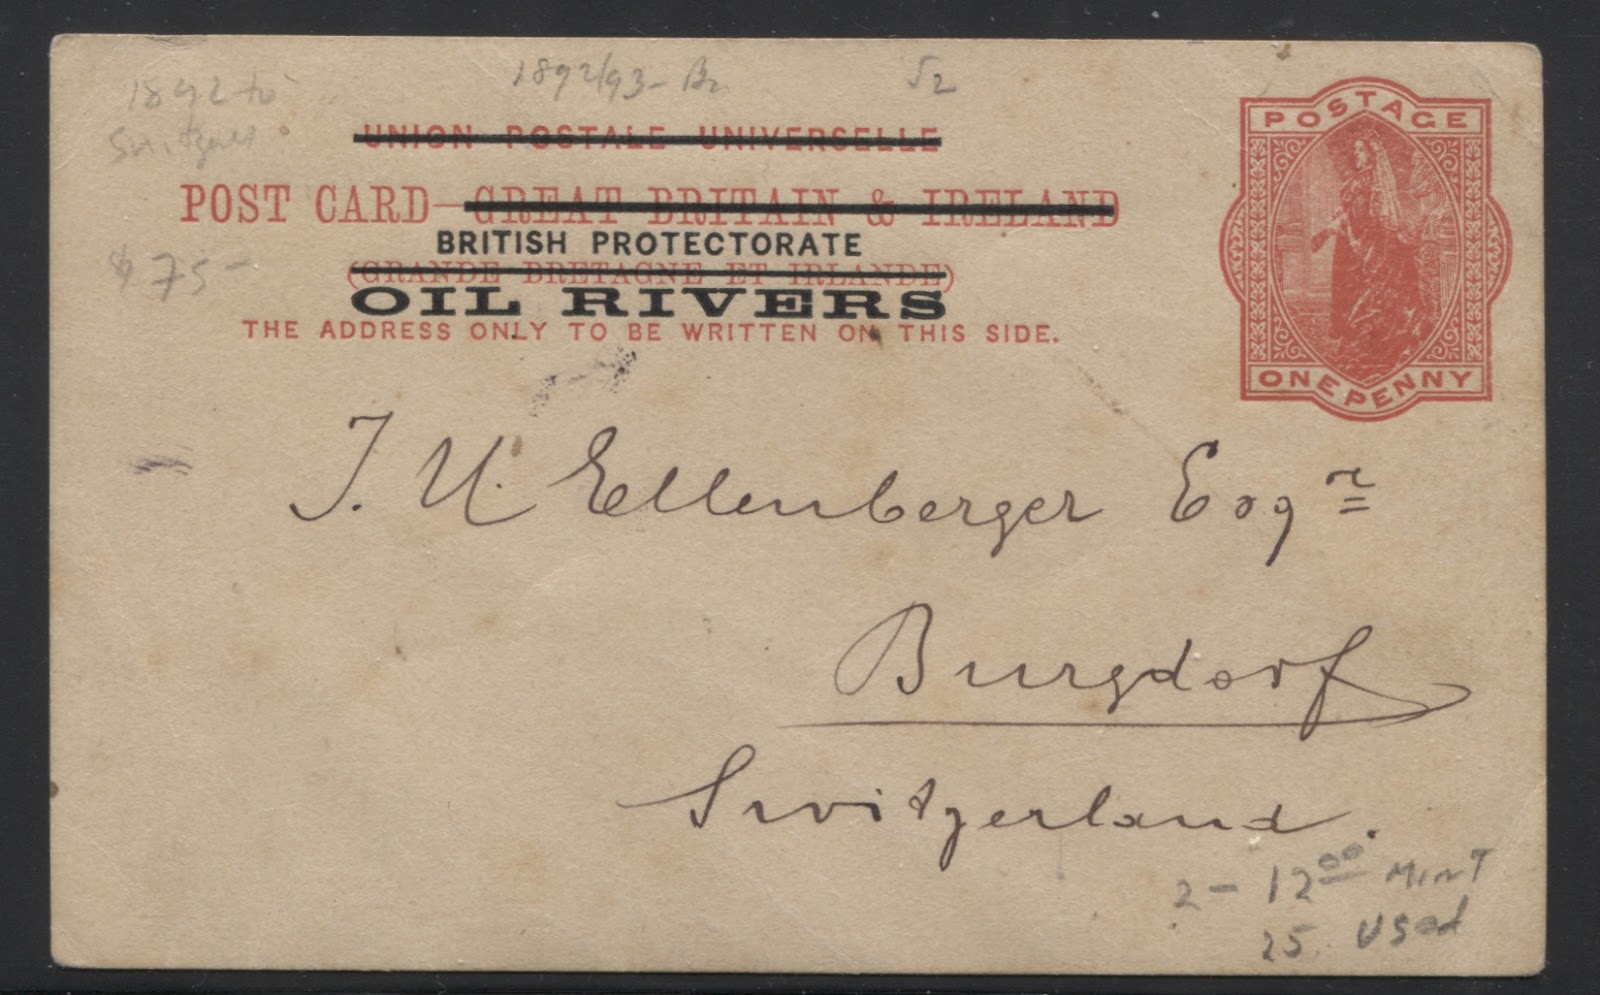 1892 to
1892/93-
Switzerl.
UNION POSTALE UNIVERSELLE
POSTAGE
POST CARD—GREAT BRITAIN & IRELAND
BRITISH PROTECTORATE
$75-
(GRANDE BRETAGNE ET IRLANDE)
OIL RIVERS
THE ADDRESS ONLY TO BE WRITTEN ON THIS SIDE.
ONE PENNY
J. U. Ellenberger Esqre
Burgdorf
Switzerland.
2 - 12 00 MINT
25. used